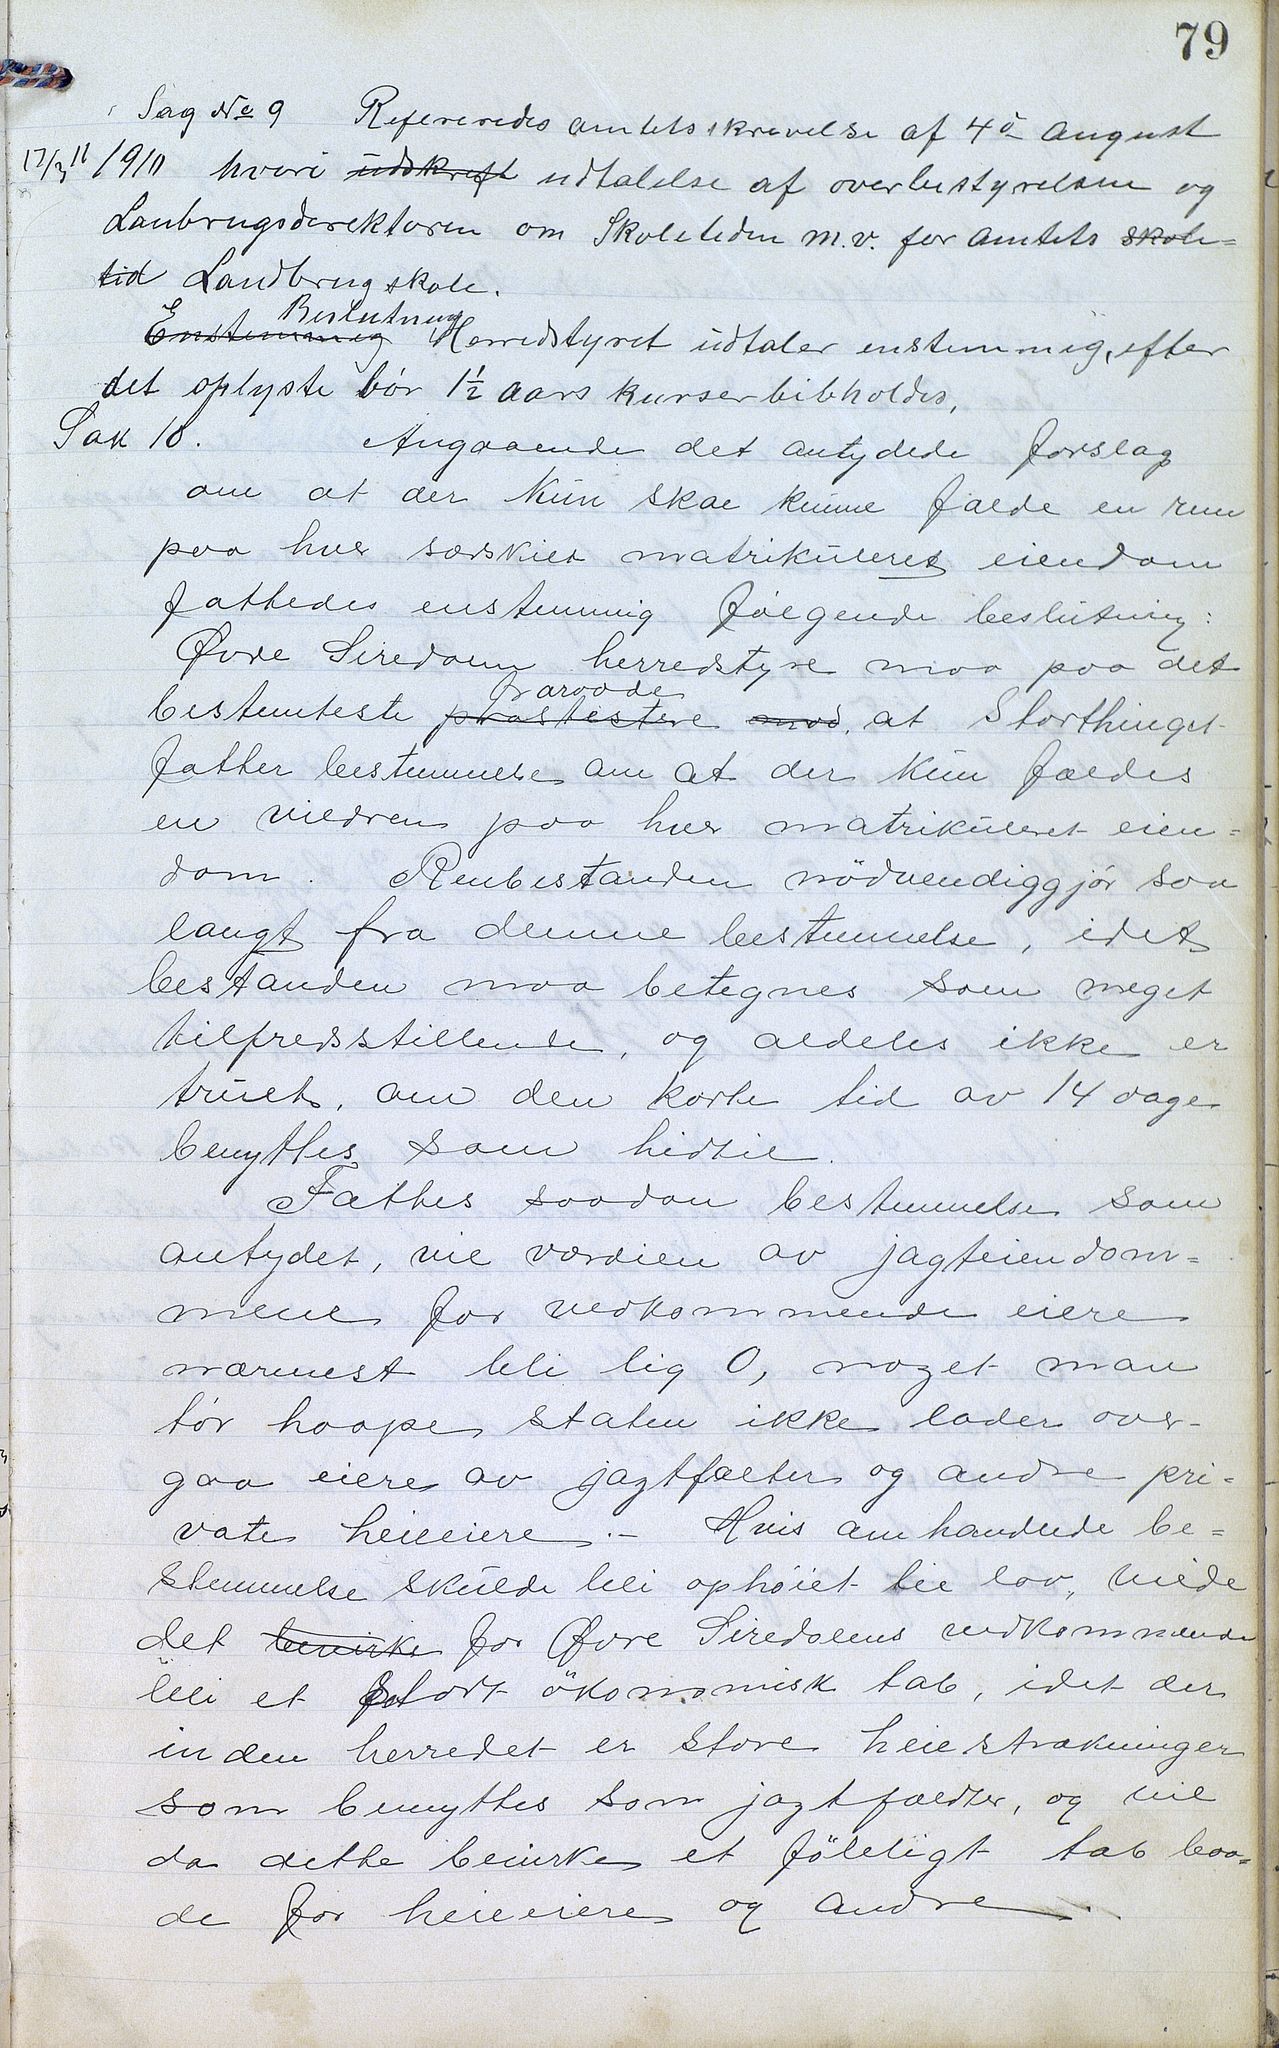 79
Sag No 9 Refereredes amtets skrivelse af 4de august
17/3 11 1910 hvori udskrift udtalelse af overbestyrelsen og
Lanbrugsdirektøren om Skoletiden m.v. for amtets skole=
tid Landbrugskole.
Beslutning
Enstemmig Herredstyret udtaler enstemmig, efter
det oplyste bør 1½ aars kurser bibholdes,
Sak 10. Angaaende det antydede forslag
om at der kun skal kunne fælde en ren
paa hver særskilt matrikuleret eiendom
fattedes enstemmig følgende beslutning:
Øvre Siredalen herredstyre maa paa det
fraraade
bestemteste protestere mod, at Storthinget
fatter bestemmelse om at der kun fældes
en vildren paa hver matrikuleret eien=
dom. Renbestanden nödvendiggjør saa
langt fra denne bestemmelse, idet
bestanden maa betegnes som meget
tilfredsstillende, og aldeles ikke er
truet, om den korte tid av 14 dage
benyttes som hidtil.
Fattes saadan bestemmelse som
antydet, vil værdien av jagteiendom=
mene for vedkommende eiere
nærmest bli lig 0, noget man
tør haape staten ikke lader over-
gaa eiere av jagtfælter og andre pri-
vate heieiere. – Hvis omhandlede be=
stemmelse skulde bli ophøiet til lov, vilde
det bevirke for Øvre Siredalens vedkommende
bli et stort ökonomisk tab, idet der
inden herredet er store heiestrækninger
som benyttes som jagtfældter, og vil
da dette bevirke et föleligt tab baa=
de for heieiere og andre.